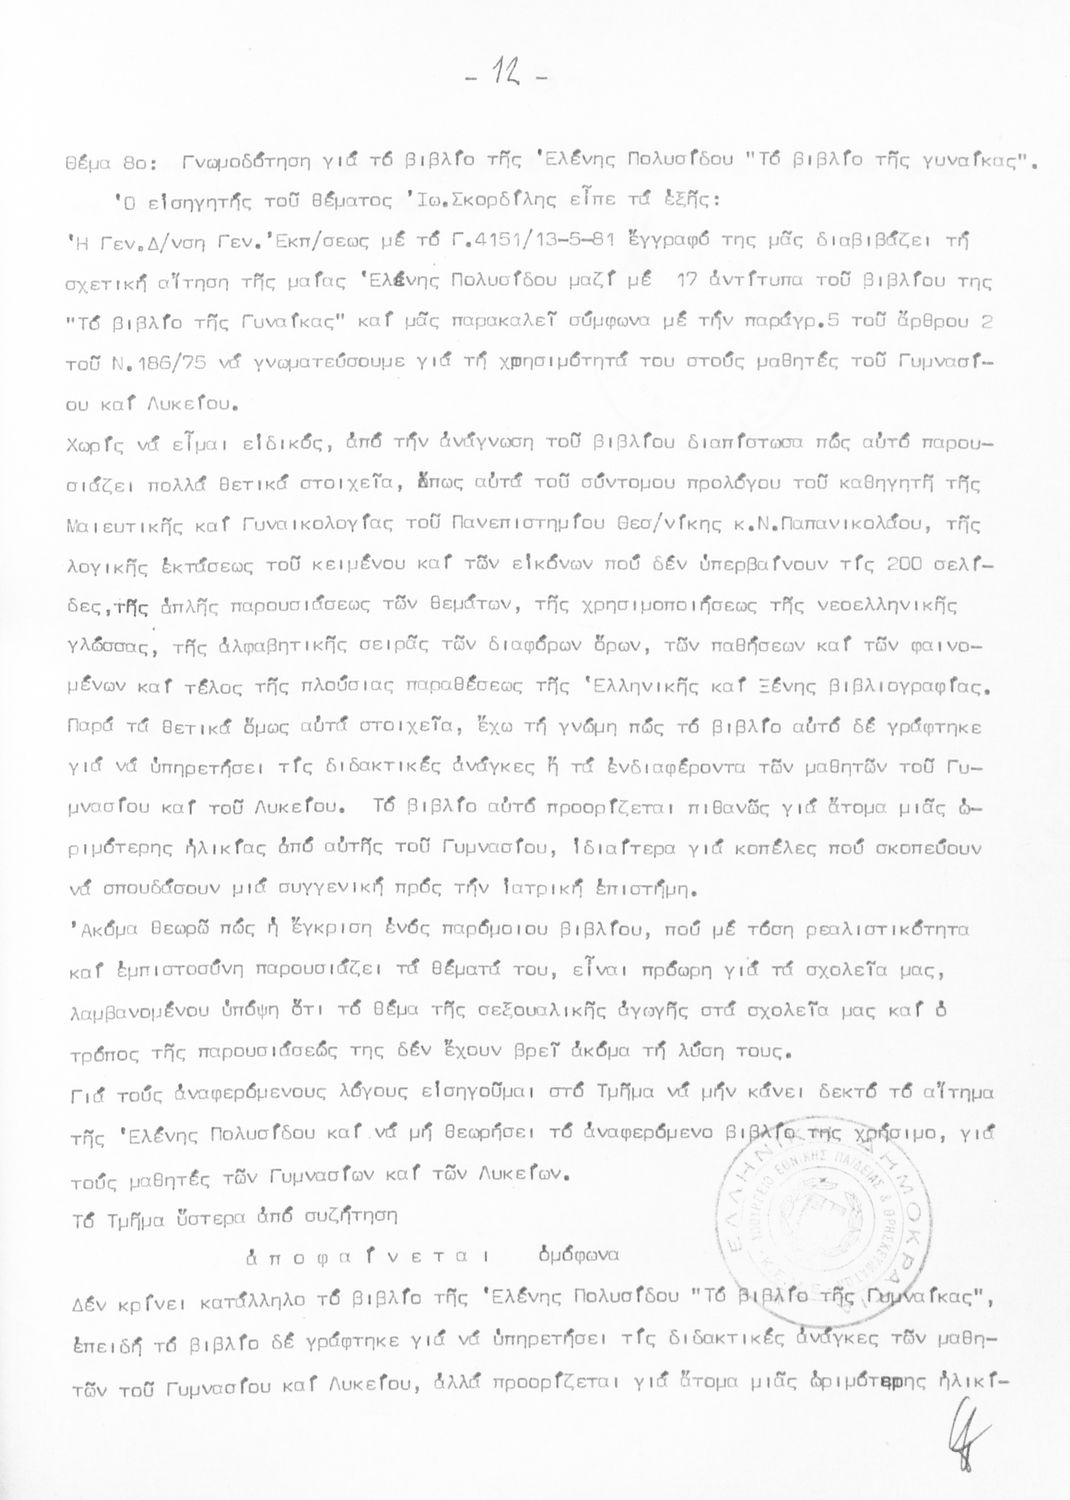 - 12 -
θέμα 8ο: Γνωμοδότηση γιά τό βιβλίο τῆς Ἑλένης Πολυσίδου "Τό βιβλίο τῆς γυναίκας".
Ὁ εἰσηγητής τοῦ θέματος Ἰω.Σκορδίλης εἶπε τά ἑξῆς:
Ἡ Γεν.Δ/νση Γεν.Ἐκπ/σεως μέ τό Γ.4151/13-5-81 ἔγγραφό της μᾶς διαβιβάζει τή
σχετική αἴτηση τῆς μαίας Ἑλένης Πολυσίδου μαζί μέ 17 ἀντίτυπα τοῦ βιβλίου της
"Τό βιβλίο τῆς Γυναίκας" καί μᾶς παρακαλεῖ σύμφωνα μέ τήν παράγρ.5 τοῦ ἄρθρου 2
τοῦ Ν.186/75 νά γνωματεύσουμε γιά τή χρησιμότητά του στούς μαθητές τοῦ Γυμνασί-
ου καί Λυκείου.
Χωρίς νά εἶμαι εἰδικός, ἀπό τήν ἀνάγνωση τοῦ βιβλίου διαπίστωσα πώς αὐτό παρου-
σιάζει πολλά θετικά στοιχεῖα, ὅπως αὐτά τοῦ σύντομου προλόγου τοῦ καθηγητῆ τῆς
Μαιευτικῆς καί Γυναικολογίας τοῦ Πανεπιστημίου Θεσ/νίκης κ.Ν.Παπανικολάου, τῆς
λογικῆς ἐκτάσεως τοῦ κειμένου καί τῶν εἰκόνων πού δέν ὑπερβαίνουν τίς 200 σελί-
δες,τῆς ἁπλῆς παρουσιάσεως τῶν θεμάτων, τῆς χρησιμοποιήσεως τῆς νεοελληνικῆς
γλώσσας, τῆς ἀλφαβητικῆς σειρᾶς τῶν διαφόρων ὅρων, τῶν παθήσεων καί τῶν φαινο-
μένων καί τέλος τῆς πλούσιας παραθέσεως τῆς Ἑλληνικῆς καί Ξένης βιβλιογραφίας.
Παρά τά θετικά ὅμως αὐτά στοιχεῖα, ἔχω τή γνώμη πώς τό βιβλίο αὐτό δέ γράφτηκε
γιά νά ὑπηρετήσει τίς διδακτικές ἀνάγκες ἤ τά ἐνδιαφέροντα τῶν μαθητῶν τοῦ Γυ-
μνασίου καί τοῦ Λυκείου. Τό βιβλίο αὐτό προορίζεται πιθανῶς γιά ἄτομα μιᾶς ὡ-
ριμότερης ἡλικίας ἀπό αὐτῆς τοῦ Γυμνασίου, ἰδιαίτερα γιά κοπέλες πού σκοπεύουν
νά σπουδάσουν μιά συγγενική πρός τήν Ἰατρική ἐπιστήμη.
Ἀκόμα θεωρῶ πώς ἡ ἔγκριση ἑνός παρόμοιου βιβλίου, πού μέ τόση ρεαλιστικότητα
καί ἐμπιστοσύνη παρουσιάζει τά θέματά του, εἶναι πρόωρη γιά τά σχολεῖα μας,
λαμβανομένου ὑπόψη ὅτι τό θέμα τῆς σεξουαλικῆς ἀγωγῆς στά σχολεῖα μας καί ὁ
τρόπος τῆς παρουσιάσεώς της δέν ἔχουν βρεῖ ἀκόμα τή λύση τους.
Γιά τούς ἀναφερόμενους λόγους εἰσηγοῦμαι στό Τμῆμα νά μήν κάνει δεκτό τό αἴτημα
τῆς Ἑλένης Πολυσίδου καί νά μή θεωρήσει τό ἀναφερόμενο βιβλίο της χρήσιμο, γιά
τούς μαθητές τῶν Γυμνασίων καί τῶν Λυκείων.
Τό Τμῆμα ὕστερα ἀπό συζήτηση
ἀποφαίνεται ὁμόφωνα
Δέν κρίνει κατάλληλο τό βιβλίο τῆς Ἑλένης Πολυσίδου "Τό βιβλίο τῆς Γυμναίκας",
ἐπειδή τό βιβλίο δέ γράφτηκε γιά νά ὑπηρετήσει τίς διδακτικές ἀνάγκες τῶν μαθη-
τῶν τοῦ Γυμνασίου καί Λυκείου, ἀλλά προορίζεται γιά ἄτομα μιᾶς ὡριμότερης ἡλικί-
ΕΛΛΗΝΙΚΗ ΔΗΜΟΚΡΑΤΙΑ
ΥΠΟΥΡΓΕΙΟ ΕΘΝΙΚΗΣ ΠΑΙΔΕΙΑΣ & ΘΡΗΣΚΕΥΜΑΤΩΝ